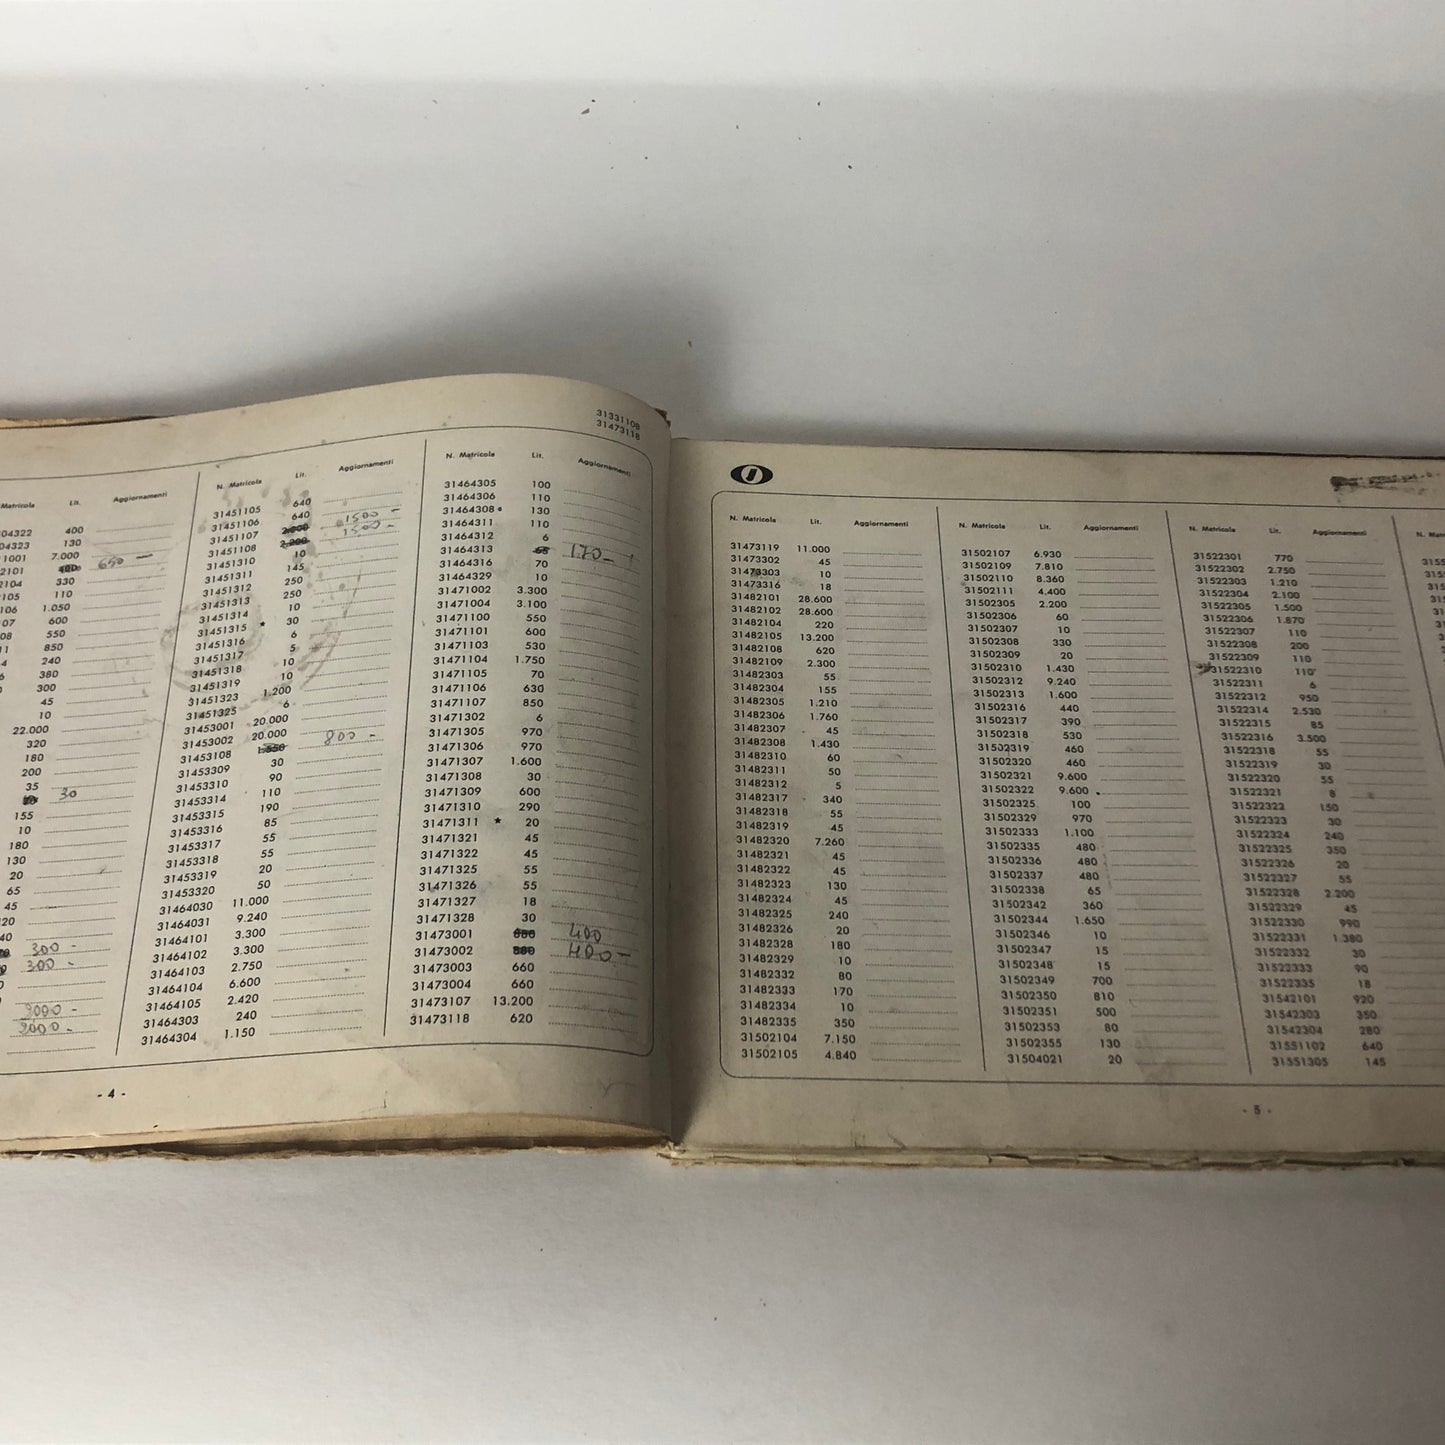 31331108
31473118
Matricola Lit. Aggiornamenti
04322 400
04323 130
1001 7.000
2101 650 -
2104 330
105 110
106 1.050
07 600
08 550
850
240
380
300
45
10
22.000
320
180
200
35
30
155
10
180
130
20
65
45
300 -
300 -
N. Matricola Lit. Aggiornamenti
31451105 640
31451106 640 1500 -
31451107 2.200 1500 -
31451108 2.200
31451310 10
31451311 145
31451312 250
31451313 250
31451314 10
31451315 * 30
31451316 6
31451317 5
31451318 10
31451319 10
31451323 1.200
31451325 6
31453001 20.000
31453002 20.000 800 -
31453108 1.550
31453309 30
31453310 90
31453314 110
31453315 190
31453316 85
31453317 55
31453318 55
31453319 20
31453320 50
31464030 11.000
31464031 9.240
31464101 3.300
31464102 3.300
31464103 2.750
31464104 6.600
31464105 2.420
31464303 240
31464304 1.150
N. Matricola Lit. Aggiornamenti
31464305 100
31464306 110
31464308 130
31464311 110
31464312 6
31464313 65 170 -
31464316 70
31464329 10
31471002 3.300
31471004 3.100
31471100 550
31471101 600
31471103 530
31471104 1.750
31471105 70
31471106 630
31471107 850
31471302 6
31471305 970
31471306 970
31471307 1.600
31471308 30
31471309 600
31471310 290
31471311 * 20
31471321 45
31471322 45
31471325 55
31471326 55
31471327 18
31471328 30
31473001 400
31473002 400 -
31473003 660
31473004 660
31473107 13.200
31473118 620
- 4 -
N. Matricola Lit. Aggiornamenti
31473119 11.000
31473302 45
31473303 10
31473316 18
31482101 28.600
31482102 28.600
31482104 220
31482105 13.200
31482108 620
31482109 2.300
31482303 55
31482304 155
31482305 1.210
31482306 1.760
31482307 45
31482308 1.430
31482310 60
31482311 50
31482312 5
31482317 340
31482318 55
31482319 45
31482320 7.260
31482321 45
31482322 45
31482323 130
31482324 45
31482325 240
31482326 20
31482328 180
31482329 10
31482332 80
31482333 170
31482334 10
31482335 350
31502104 7.150
31502105 4.840
N. Matricola Lit. Aggiornamenti
31502107 6.930
31502109 7.810
31502110 8.360
31502111 4.400
31502305 2.200
31502306 60
31502307 10
31502308 330
31502309 20
31502310 1.430
31502312 9.240
31502313 1.600
31502316 440
31502317 390
31502318 530
31502319 460
31502320 460
31502321 9.600
31502322 9.600
31502325 100
31502329 970
31502333 1.100
31502335 480
31502336 480
31502337 480
31502338 65
31502342 360
31502344 1.650
31502346 10
31502347 15
31502348 15
31502349 700
31502350 810
31502351 500
31502353 80
31502355 130
31504021 20
N. Matricola Lit. Aggiornamenti
31522301 770
31522302 2.750
31522303 1.210
31522304 2.100
31522305 1.500
31522306 1.870
31522307 110
31522308 200
31522309 110
31522310 110
31522311 6
31522312 950
31522314 2.530
31522315 85
31522316 3.500
31522318 55
31522319 30
31522320 55
31522321 8
31522322 150
31522323 30
31522324 240
31522325 350
31522326 20
31522327 55
31522328 2.200
31522329 45
31522330 990
31522331 1.380
31522332 30
31522333 90
31522335 18
31542101 920
31542303 350
31542304 280
31551102 640
31551305 145
- 5 -